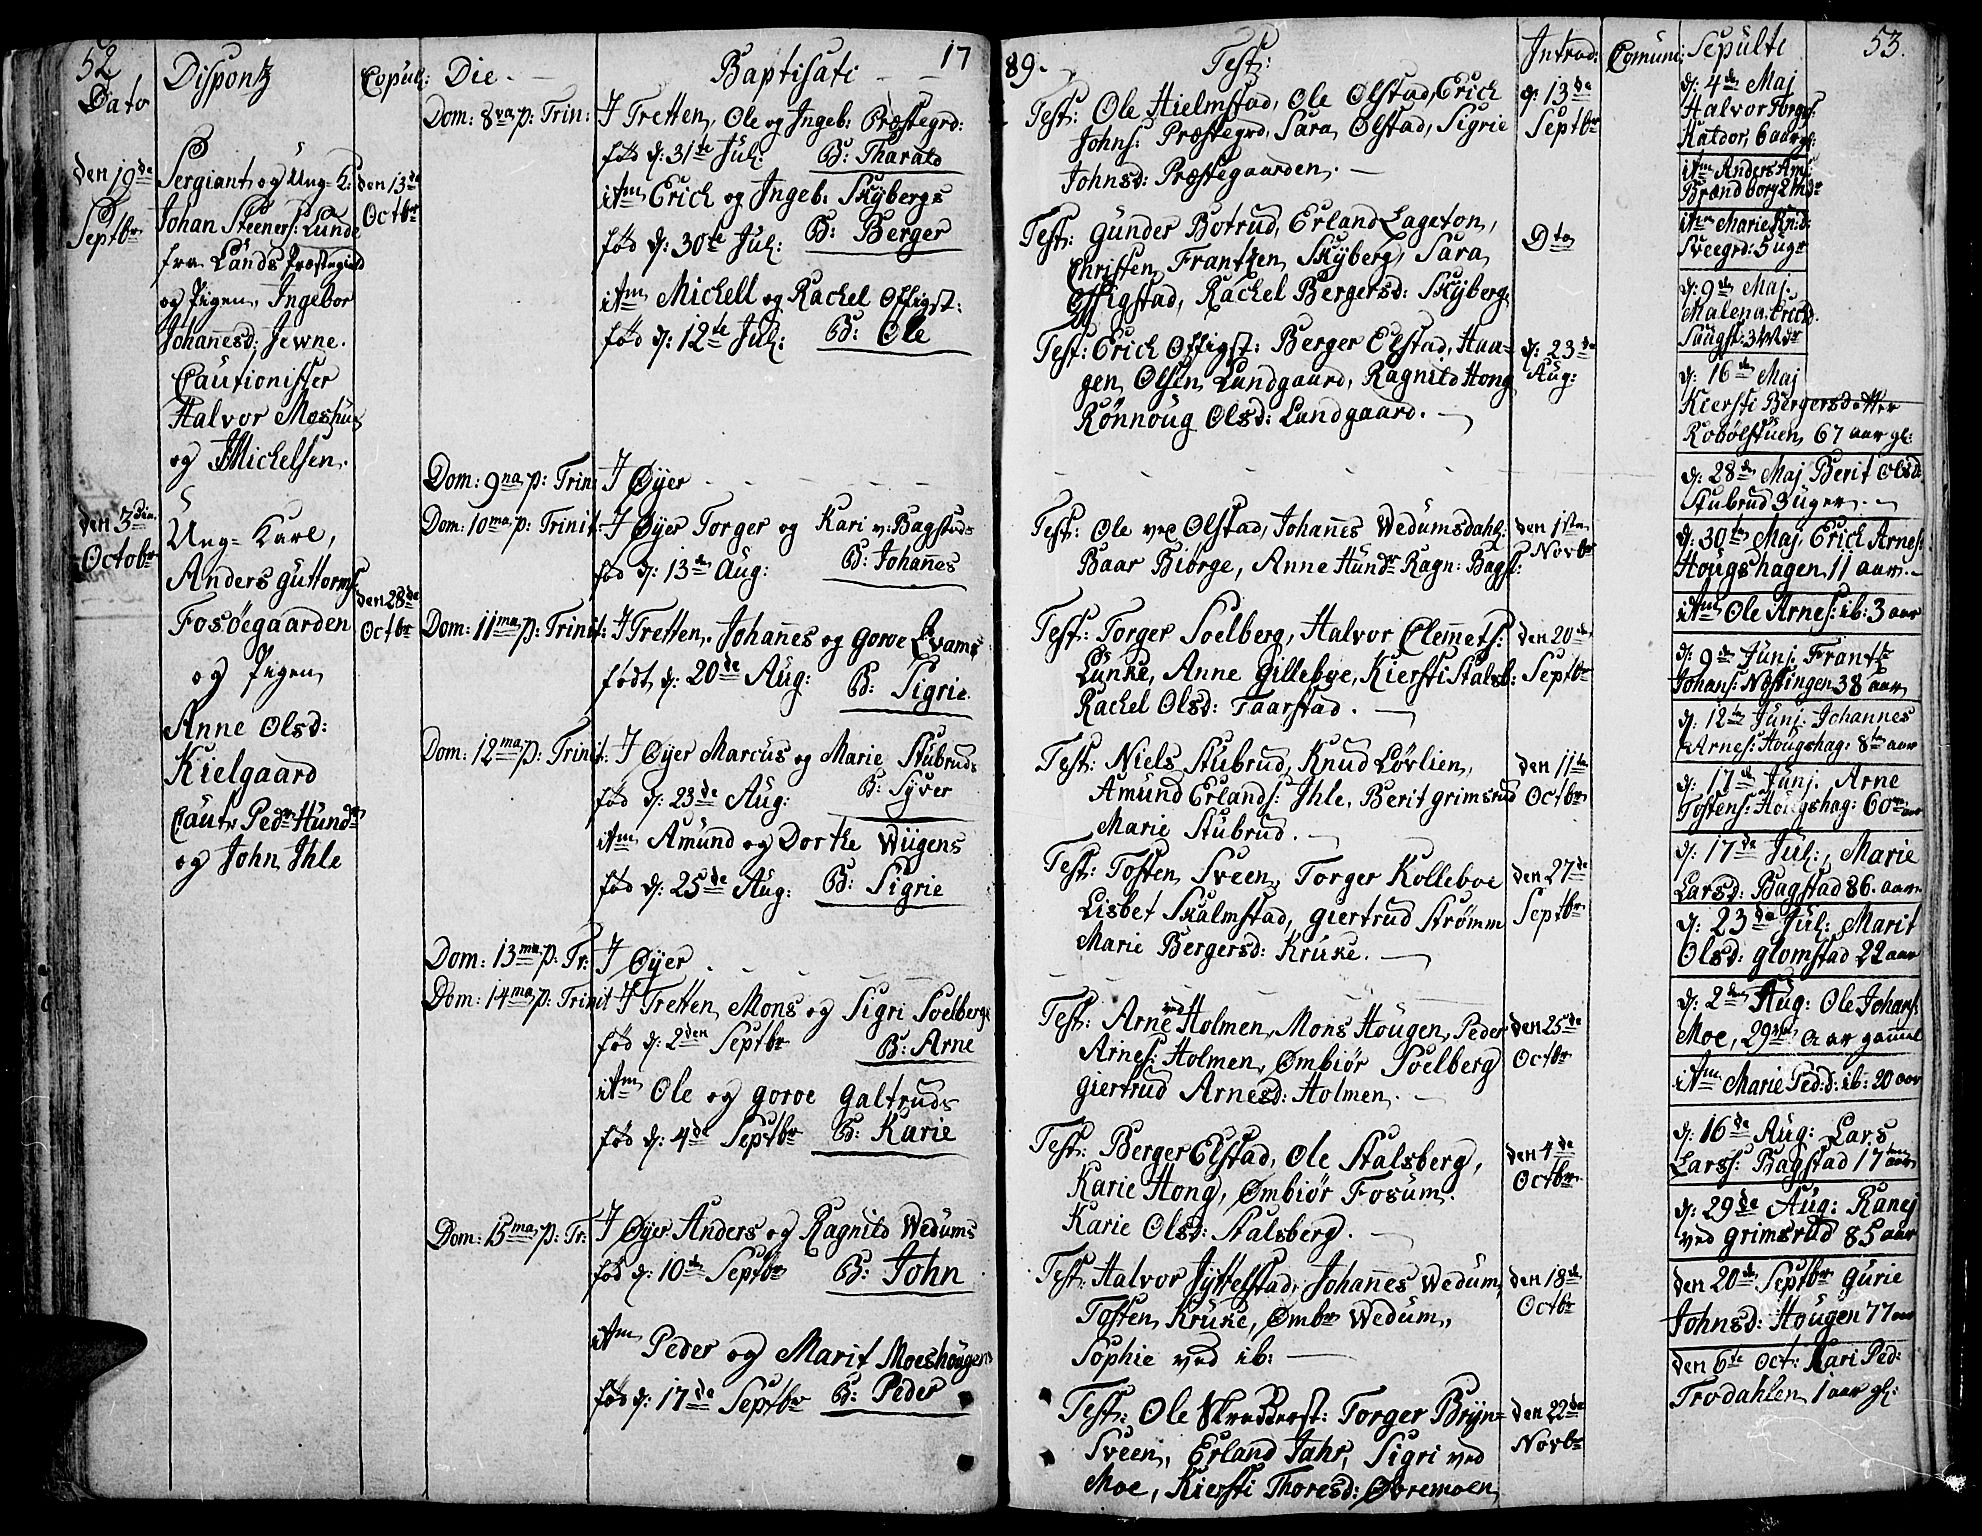 52
Dato
Disponß
Copul:
Die
Baptisati
17
den 19de
Septbr
Sergiant og Ung-K:
Johan Steeners: Lunde
fra Lands Præstegield
og Pigen, Ingebor
Johanesd: Jewne.
Cautionister
Halvor Moshu
og Michelsen.
den 13de
Octbr
den 3die
Octobr
Ung-Karl,
Anders Guttorms:
Fosöegaarden
og Pigen
Anne Olsd:
Kielgaard
Caut: Pedr Hundr
og John Ihle
den 28de
Octbr
Dom: 8va p: Trin:
I Tretten, Ole og Ingeb: Præstegrd:
fød d: 31te Jul: B: Tharald
itm Erich og Ingeb: Skybergs
fød d: 30te Jul: B: Berger
itm Michell og Rachel Offigst:
fød d: 12te Jul: B: Ole
Dom: 9na p: Trin:
I Øyer
Dom: 10ma p: Trinit:
I Øyer Torger og Kari v: Bagstads
fød d: 13de Aug: B: Johanes
Dom: 11ma p: Trinit:
I Tretten. Johanes og Goroe Qvams
født d: 20de Aug: B: Sigrie.
Dom: 12ma p: Trinit:
I Øyer Marcus og Marie Stubruds
fød d: 23de Aug: B: Syver
itm Amund og Dorthe Wiigens
fød d: 25de Aug: B: Sigrie
Dom: 13ma p: Tr:
I Øyer
Dom: 14ma p: Trinit
I Tretten Mons og Sigri Soelbergs
fød d: 2den Septbr B: Arne
itm Ole og Goroe Galtruds
fød d: 4de Septbr B: Karie
Dom: 15ma p: Tr:
I Øyer Anders og Ragnild Wedums
fød d: 10de Septbr B: John
itm Peder og Marit Moeshougens
fød d: 17de Septbr B: Peder
89.
Test:
Introd:
Comuni:
Sepulti
53.
Test: Ole Hielmstad, Ole Ølstad, Erich
Johns: Præstegrd, Sara Ølstad, Sigrie
Johnsd: Præstegaarden.
d: 13de
Septbr
Test: Gunder Botrud, Erland Lageton,
Christen Frantzen Skyberg, Sara
Offigstad, Rachel Bergersd: Skyberg.
Dto
Test: Erich Offigst: Berger Elstad, Haa-
gen Olsen Lundgaard, Ragnild Hong
Rönnoug Olsd: Lundgaard.
d: 23de
Aug:
Test: Ole ved Olstad, Johanes Wedumsdahl:
Baar Biörge, Anne Hundr Ragn: Bagst:
den 1ste
Novbr
Test: Torger Soelberg, Halvor Clemets:
Lunke, Anne Gilleboe, Kiersti Stalsb:
Rachel Olsd: Taarstad.
den 20de
Septbr
Test: Niels Stubrud, Knud Lövlien,
Amund Erlands: Ihle, Berit Grimsrud
Marie Stubrud.
den 11te
Octbr
Test: Tosten Sveen, Torger Kolleboe
Lisbet Skalmstad, Giertrud Strømm
Marie Bergersd: Kruke.
den 27de
Septbr
Test: Arne ved Holmen, Mons Hougen, Peder
Arnes: Holmen, Ømbiør Soelberg
Giertrud Arnesd: Holmen.
den 25de
Octbr
Test: Berger Elstad, Ole Stalsberg,
Karie Hong, Ømbiør Fosum.
Karie Olsd: Stalsberg.
den 4de
Octbr
Test: Halvor Jyttelstad, Johanes Wedum,
Tosten Kruke, Ømbr Wedum,
Sophie ved ib:
den 18de
Octbr
Test: Ole Skredderst: Torger Bryn=
Sveen, Erland Jahr, Sigri ved
Moe, Kiersti Thoresd: Øvremoen
den 22de
Novbr
d: 4de Maj
Halvor Torgers:
6 aar gl:
itm Anders Am:
Brandborg 2 Mdr
itm Marie Knd:
Sveegrd: 5 ugr
d: 9de Maj.
Malena Erichd.
Saugst: 3 Mdr
d: 16de Maj
Kiersti Bergersdatter
Robølstuen 67 aar gl:
d: 28de Maj Berit Olsd:
Stubrud 3 uger.
d: 30te Maj Erich Arnes:
Hougshagen 11 aar.
itm Ole Arnes: ib: 3 aar
d: 9de Junj. Frantz
Johans: Nöstingen 38 aar
d: 12te Junj. Johannes
Arnes: Hougshag: 8te aar
d: 17de Junj. Arne
Tostens: Hougshag: 60 aar
d: 17de Jul:, Marie
Larsd: Bagstad 86. aar
d: 23de Jul: Marit
Olsd: Glomstad 22 aar
d: 2den Aug: Ole Johans:
Moe, 29 aar gamel
itm Marie Ped:d: ib: 20 aar
d: 16de Aug: Lars
Larss: Bagstad 17 aar
d: 29de Aug: Ranej
ved Grimsrud 85 aar
den 20de Septbr Gurie
Johnsd: Hougen 77 aar
den 6te Oct: Kari Ped:
Trodahlen 1 aar gl: